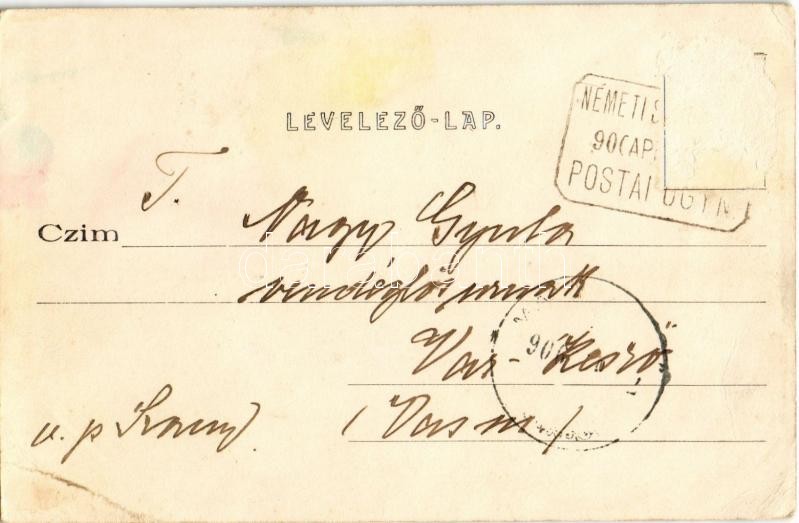 LEVELEZŐ-LAP.
NÉMETI S
90(AP
POSTAI ÜGYN.
T.
Czim Nagy Gyula
vendéglős urnak
Vas-Keszö
u. p (Vasm)
90